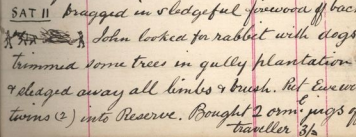 SAT 11 Dragged in sledgeful firewood off back
John looked for rabbit with dogs
trimmed some trees in gully plantation
& sledged away all limbs & brush. Put Ewe wo
twins (2) into Reserve. Bought 2 orm: jugs of
traveller 3/2